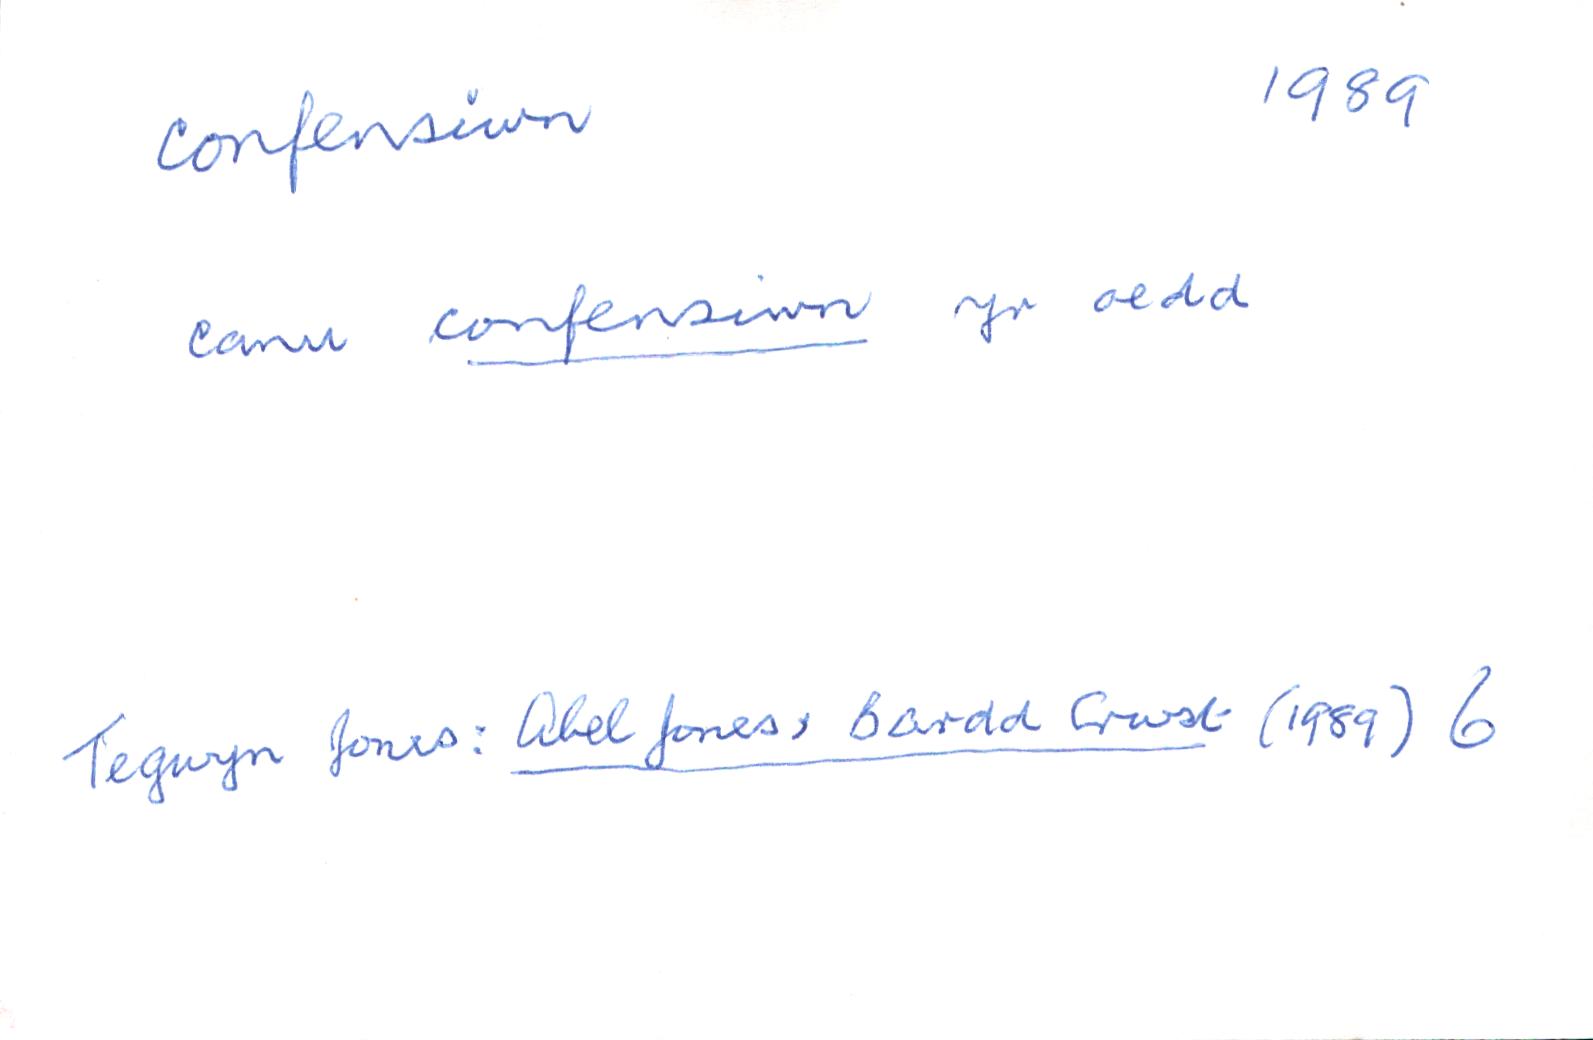 confensiwn 1989
canu confensiwn yr oedd
Tegwyn Jones: Abel Jones, Bardd Crwst (1989) 6